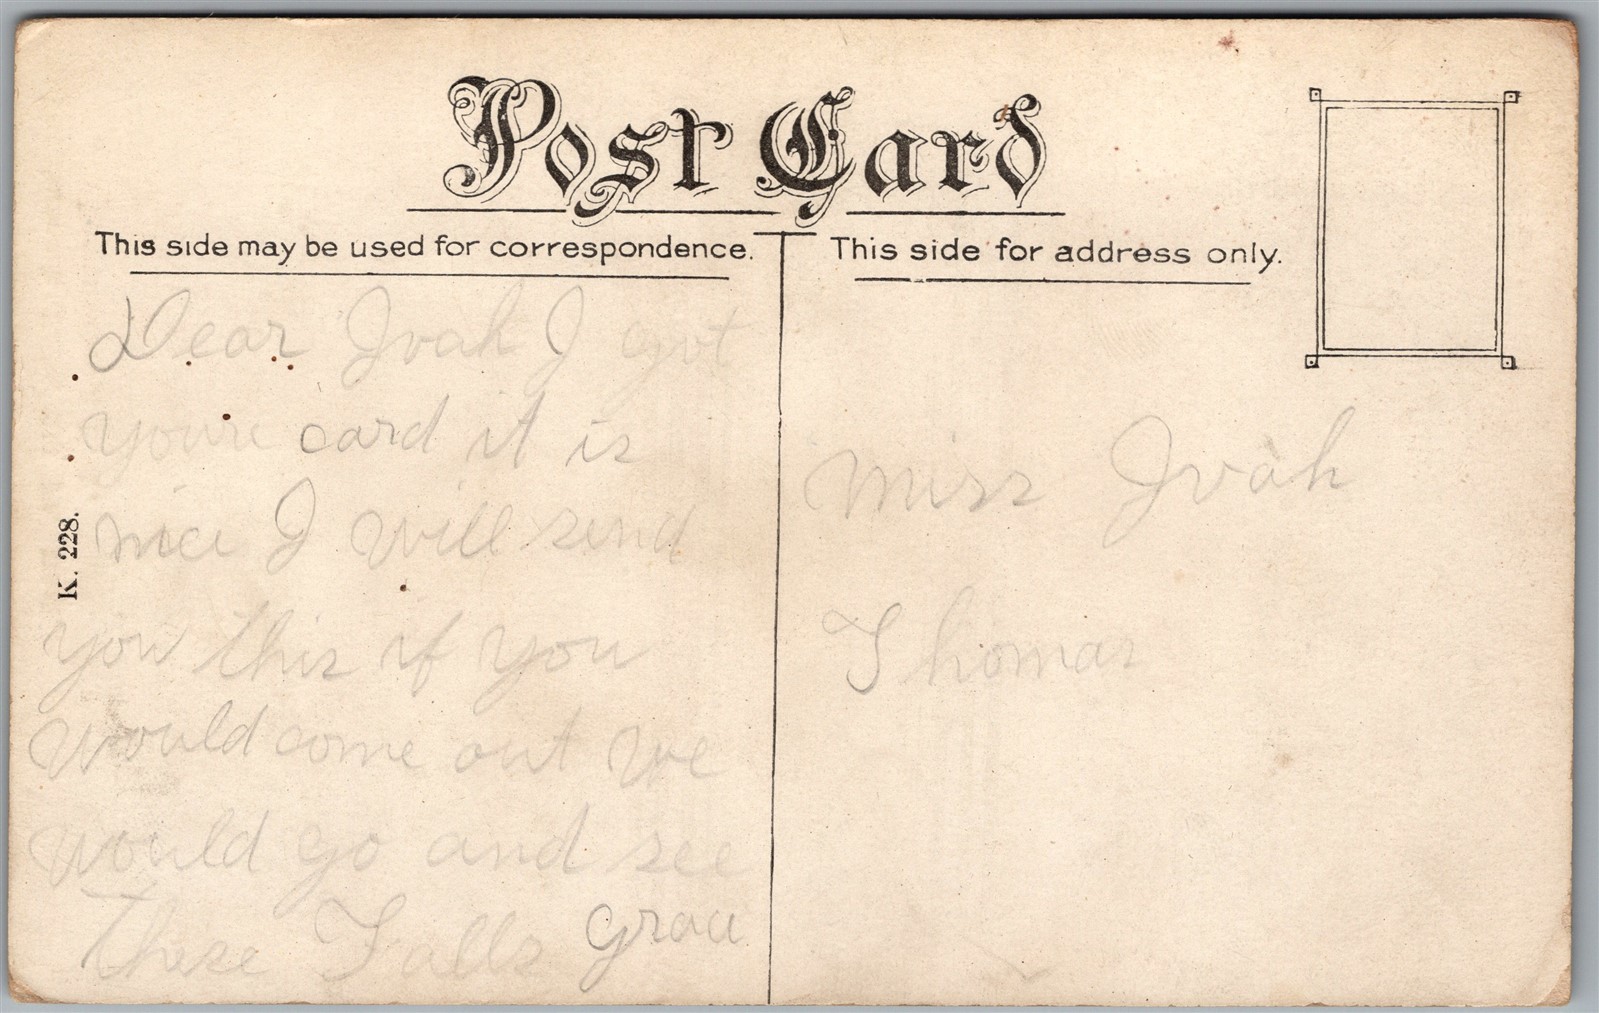 Post Card
This side may be used for correspondence.
This side for address only.
Dear Ivah I got
youre card it is
nice I will send
you this if you
would come out we
would go and see
these Falls Grace
K. 228.
Miss Ivah
Thomas